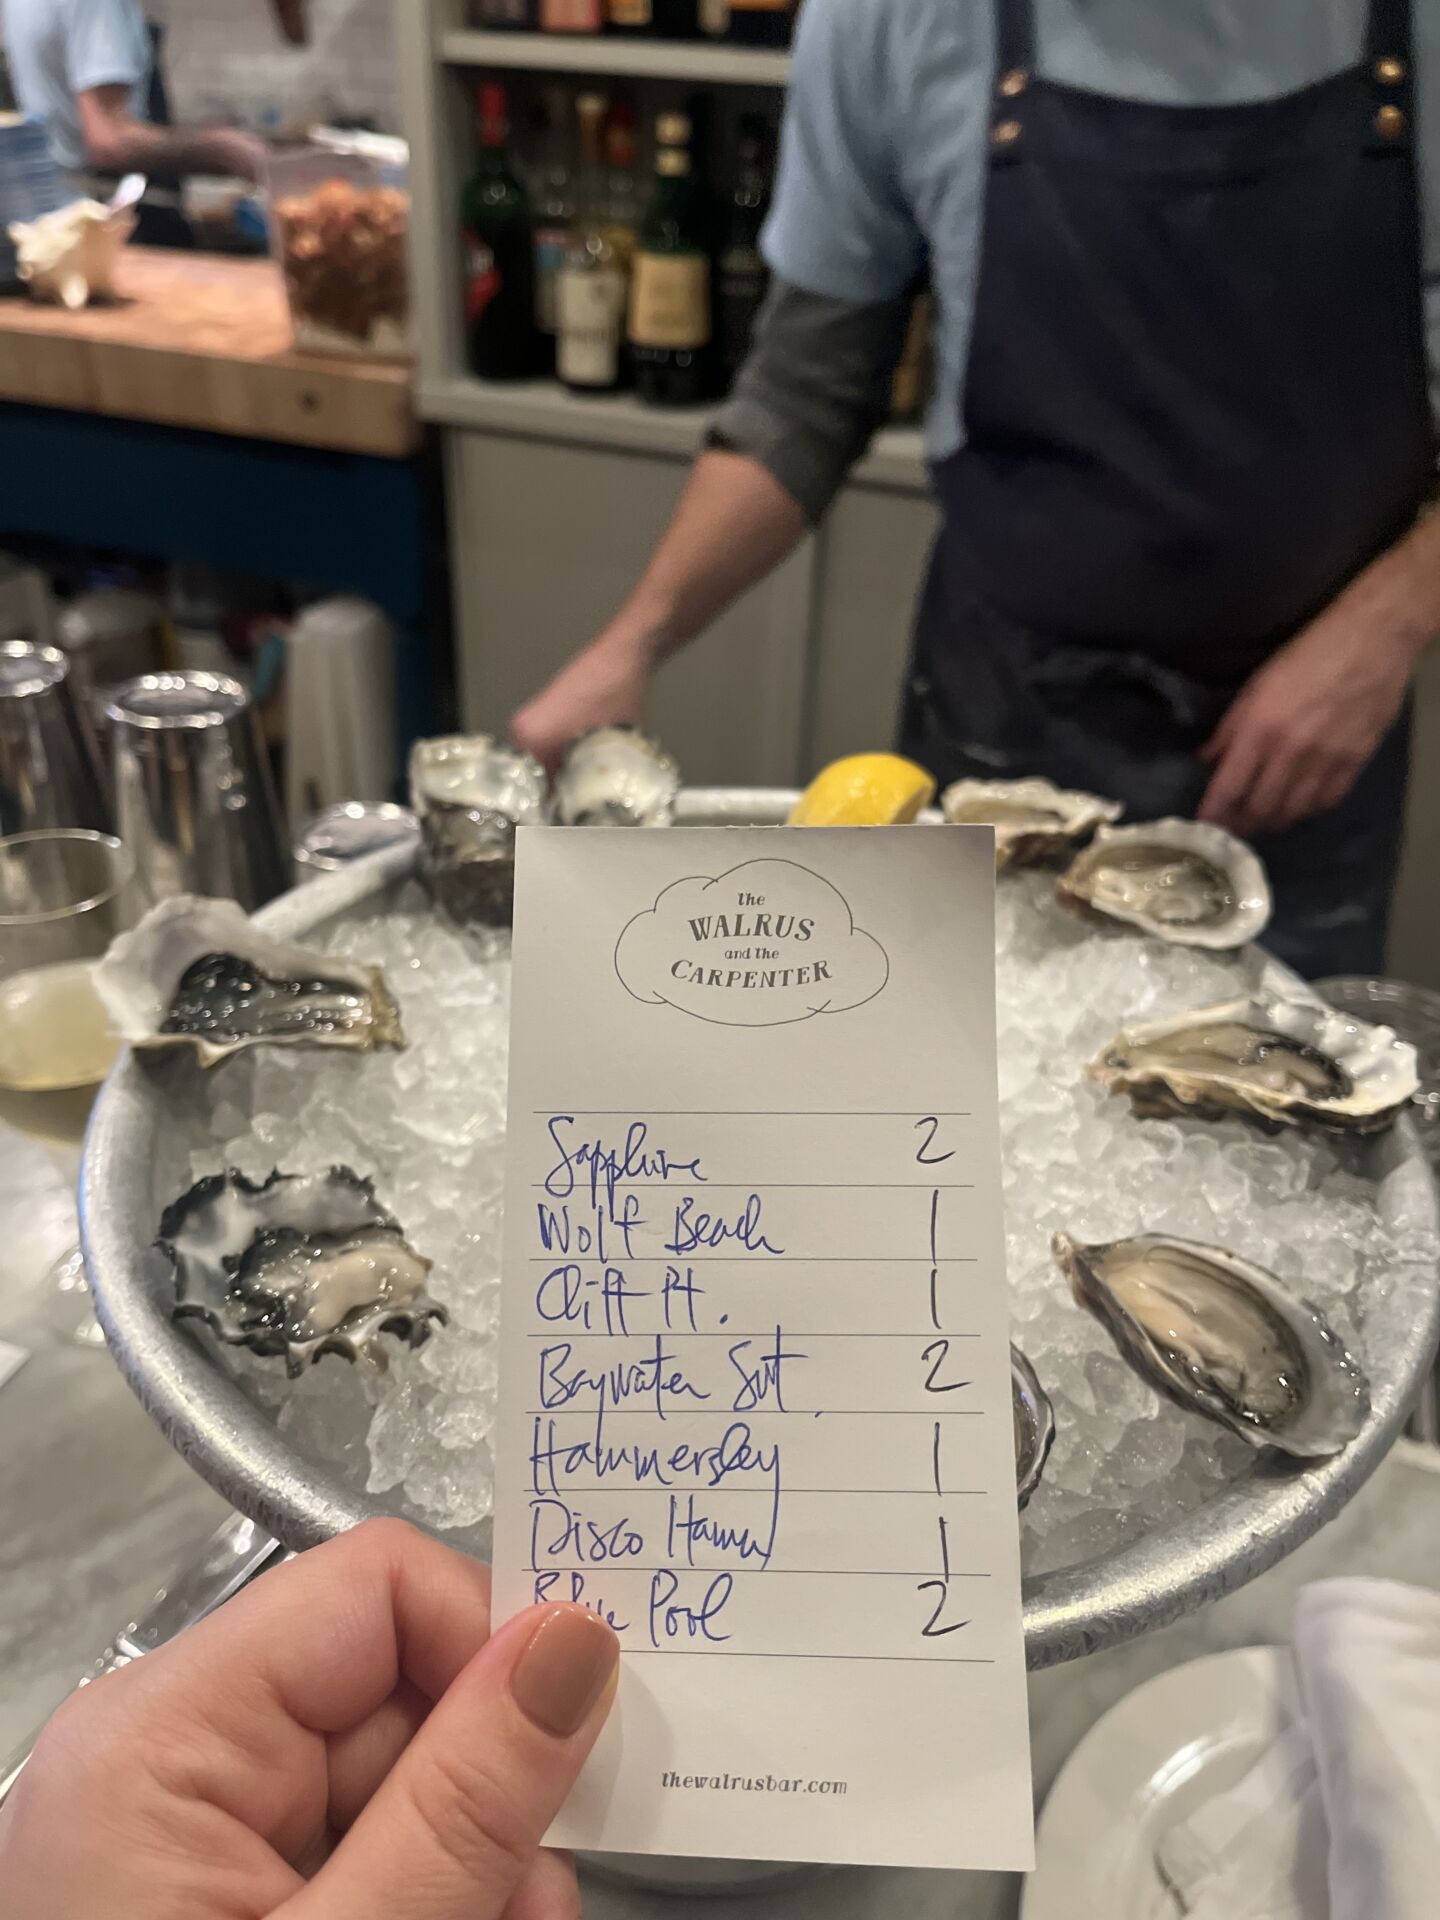 the
WALRUS
and the
CARPENTER
Sapphire 2
Wolf Beach 1
Cliff Pt. 1
Baywater Swt. 2
Hammersley 1
Disco Hama 1
Blue Pool 2
thewalrusbar.com